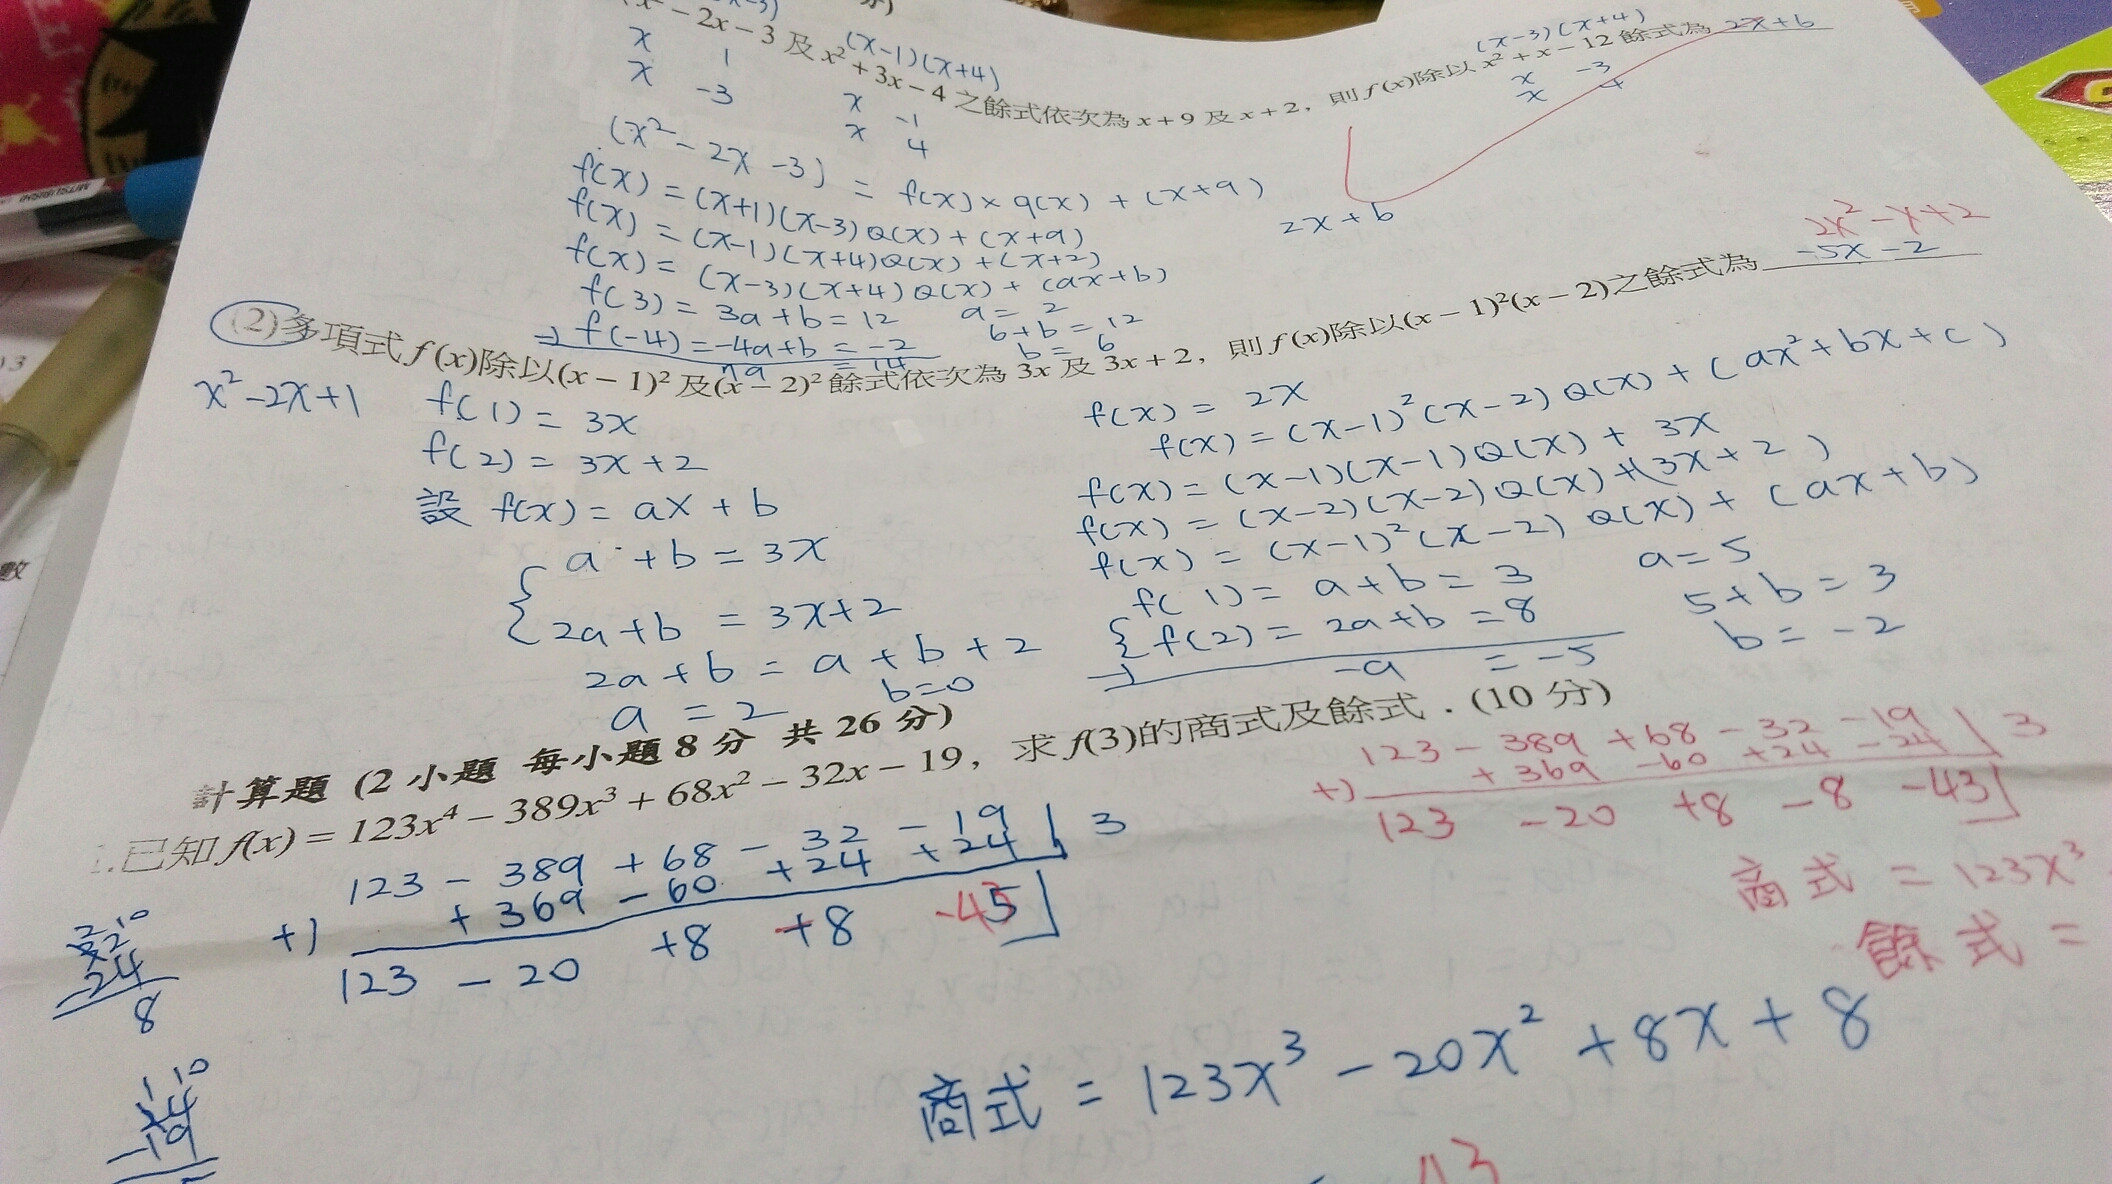 x² - 2x - 3 及 x² + 3x - 4 之餘式依次為 x + 9 及 x + 2，則 f(x)除以 x² + x - 12 餘式為 2x+6
(x-1)(x+4)
(x-3)(x+4)
x 1
x -3
x -1
x 4
x -3
x 4
(x²-2x-3) = f(x)×q(x)+(x+9)
f(x)=(x+1)(x-3)Q(x)+(x+9)
f(x)=(x-1)(x+4)Q(x)+(x+2)
f(x)=(x-3)(x+4)Q(x)+(ax+b)
f(3)=3a+b=12
-) f(-4)=-4a+b=-2
7a =14
a=2
6+b=12
b=6
2x+6
2x²-x+2
(2)多項式 f(x)除以(x - 1)² 及(x - 2)² 餘式依次為 3x 及 3x + 2，則 f(x)除以(x - 1)²(x - 2)之餘式為 -5x-2
x²-2x+1
f(1)=3x
f(2)=3x+2
設 f(x)=ax+b
a+b=3x
2a+b=3x+2
2a+b=a+b+2
b=0
a=2
f(x)=2x
f(x)=(x-1)²(x-2)Q(x)+(ax²+bx+c)
f(x)=(x-1)(x-1)Q(x)+3x
f(x)=(x-2)(x-2)Q(x)+(3x+2)
f(x)=(x-1)²(x-2)Q(x)+(ax+b)
f(1)=a+b=3
f(2)=2a+b=8
-) -a =-5
a=5
5+b=3
b=-2
計算題 (2 小題 每小題 8 分 共 26 分)
.已知 f(x) = 123x⁴ - 389x³ + 68x² - 32x - 19，求 f(3)的商式及餘式．(10 分)
123-389+68-32-19 3
+) +369-60+24-24
123 -20 +8 -8 -43
商式=123x³
餘式=
123-389+68-32-19 3
+) +369-60+24+24
123 -20 +8 +8 -43 5
24
8
19
商式=123x³-20x²+8x+8